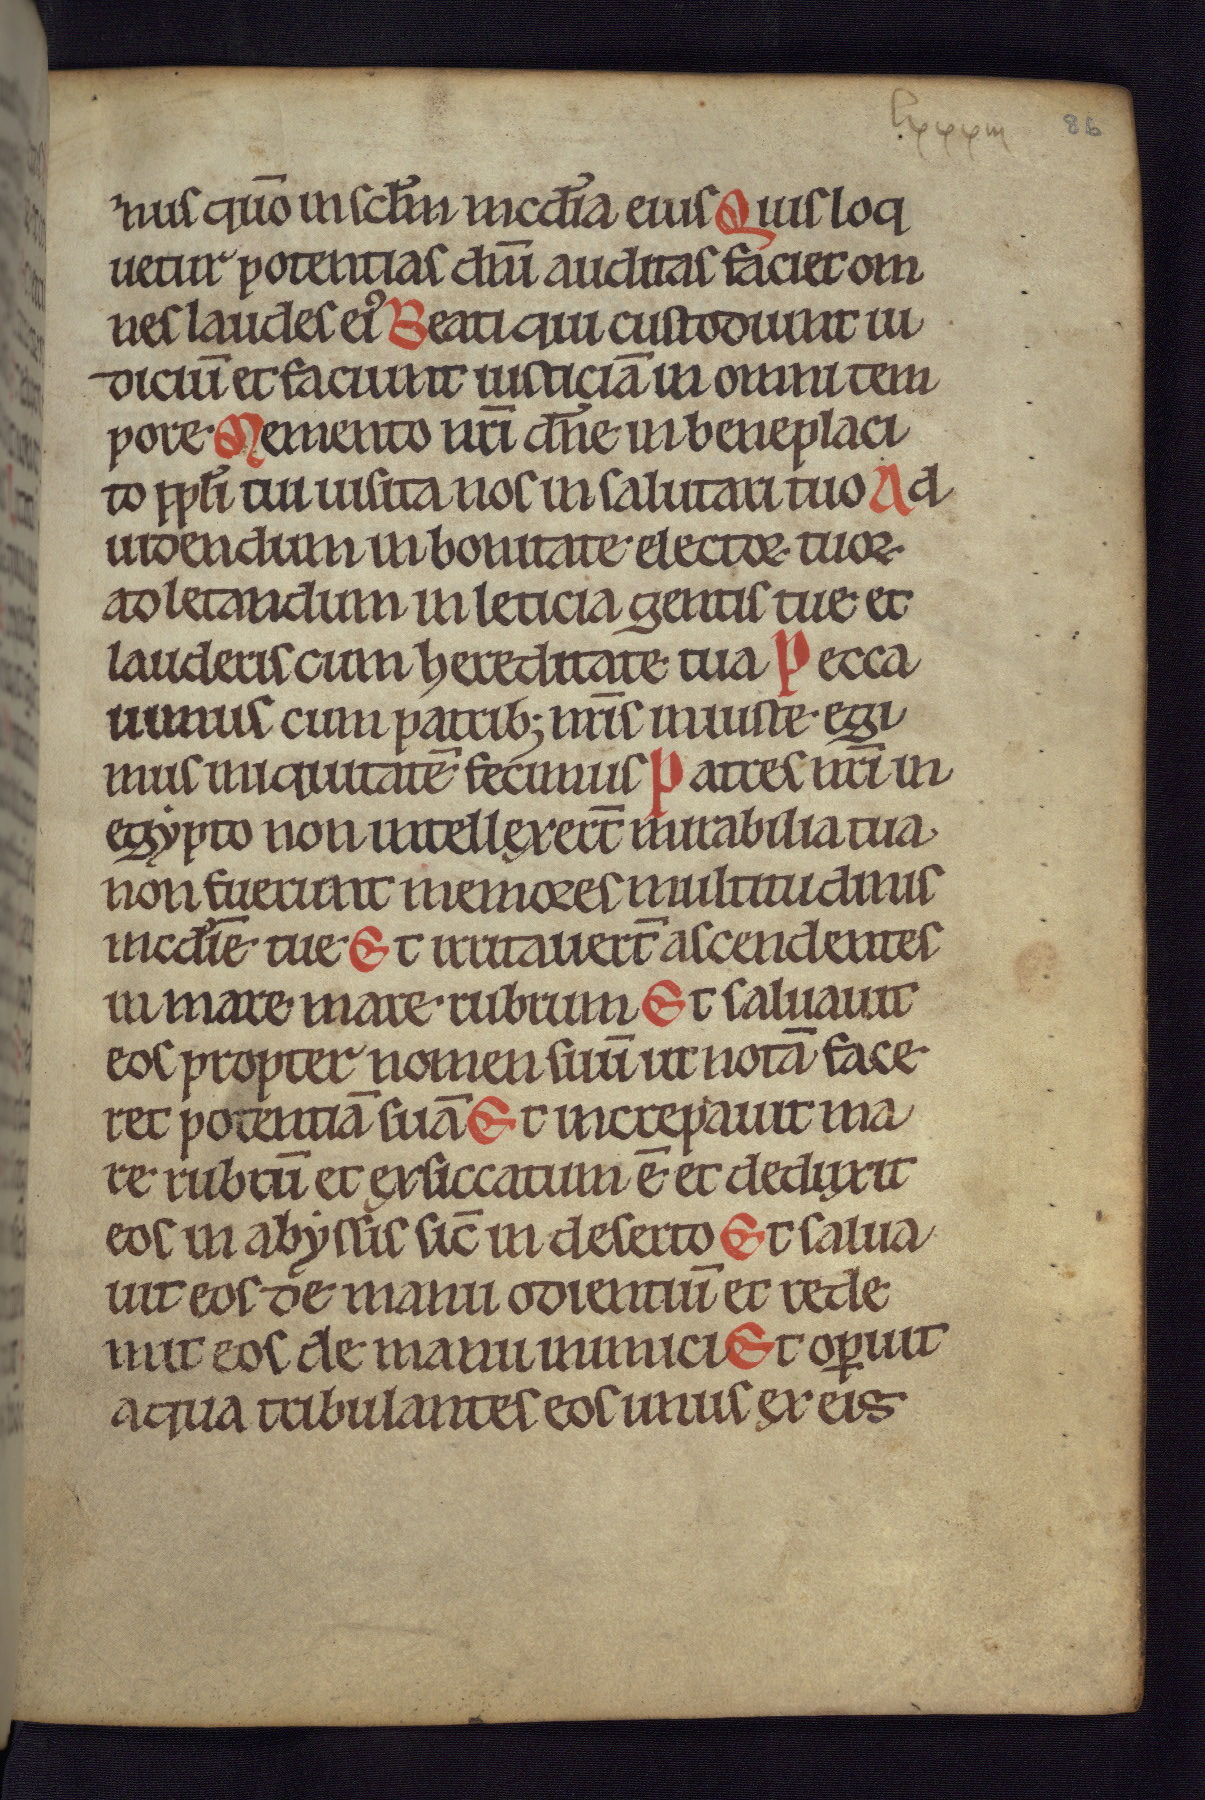 lxxxiii 86
nus qūo in scl̄m mcđia eius Quis loq
uetur potentias dn̄i auditas faciet om
nes laudes eiꝰ Beati qui custodiunt iu
diciū et faciunt iusticiā in omni tem
pore Memento nr̄i dn̄e in beneplaci
to ppl̄i tui uisita nos in salutari tuo Ad
uidendum in bonitate electoꝝ tuoꝝ
ad letandum in leticia gentis tue et
lauderis cum hereditate tua Pecca
uimus cum patrib; nr̄is iniuste egi
mus iniquitatē fecimus Patres nr̄i in
egypto non intellexert̄ mirabilia tua
non fuerunt memores multitudinis
mcđie tue Et irritauert̄ ascendentes
in mare mare rubrum Et saluauit
eos propter nomen suū ut notā face
ret potentiā suā Et increpauit ma
re rubrū et exsiccatum ē et deduxit
eos in abyssis sic̄ in deserto Et salua
uit eos de manu odientiū et rede
mit eos de manu inimici Et oꝑuit
aqua tribulantes eos unus ex eis